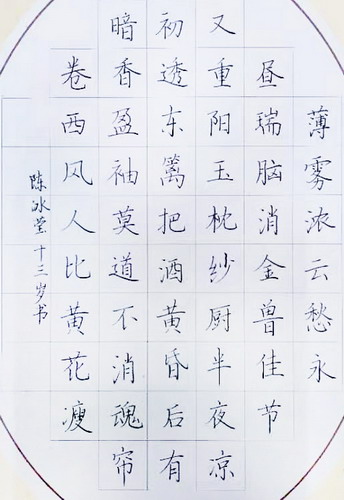 薄雾浓云愁永
昼瑞脑消金兽佳节
又重阳玉枕纱厨半夜凉
初透东篱把酒黄昏后有
暗香盈袖莫道不消魂帘
卷西风人比黄花瘦
陈冰 十三岁书